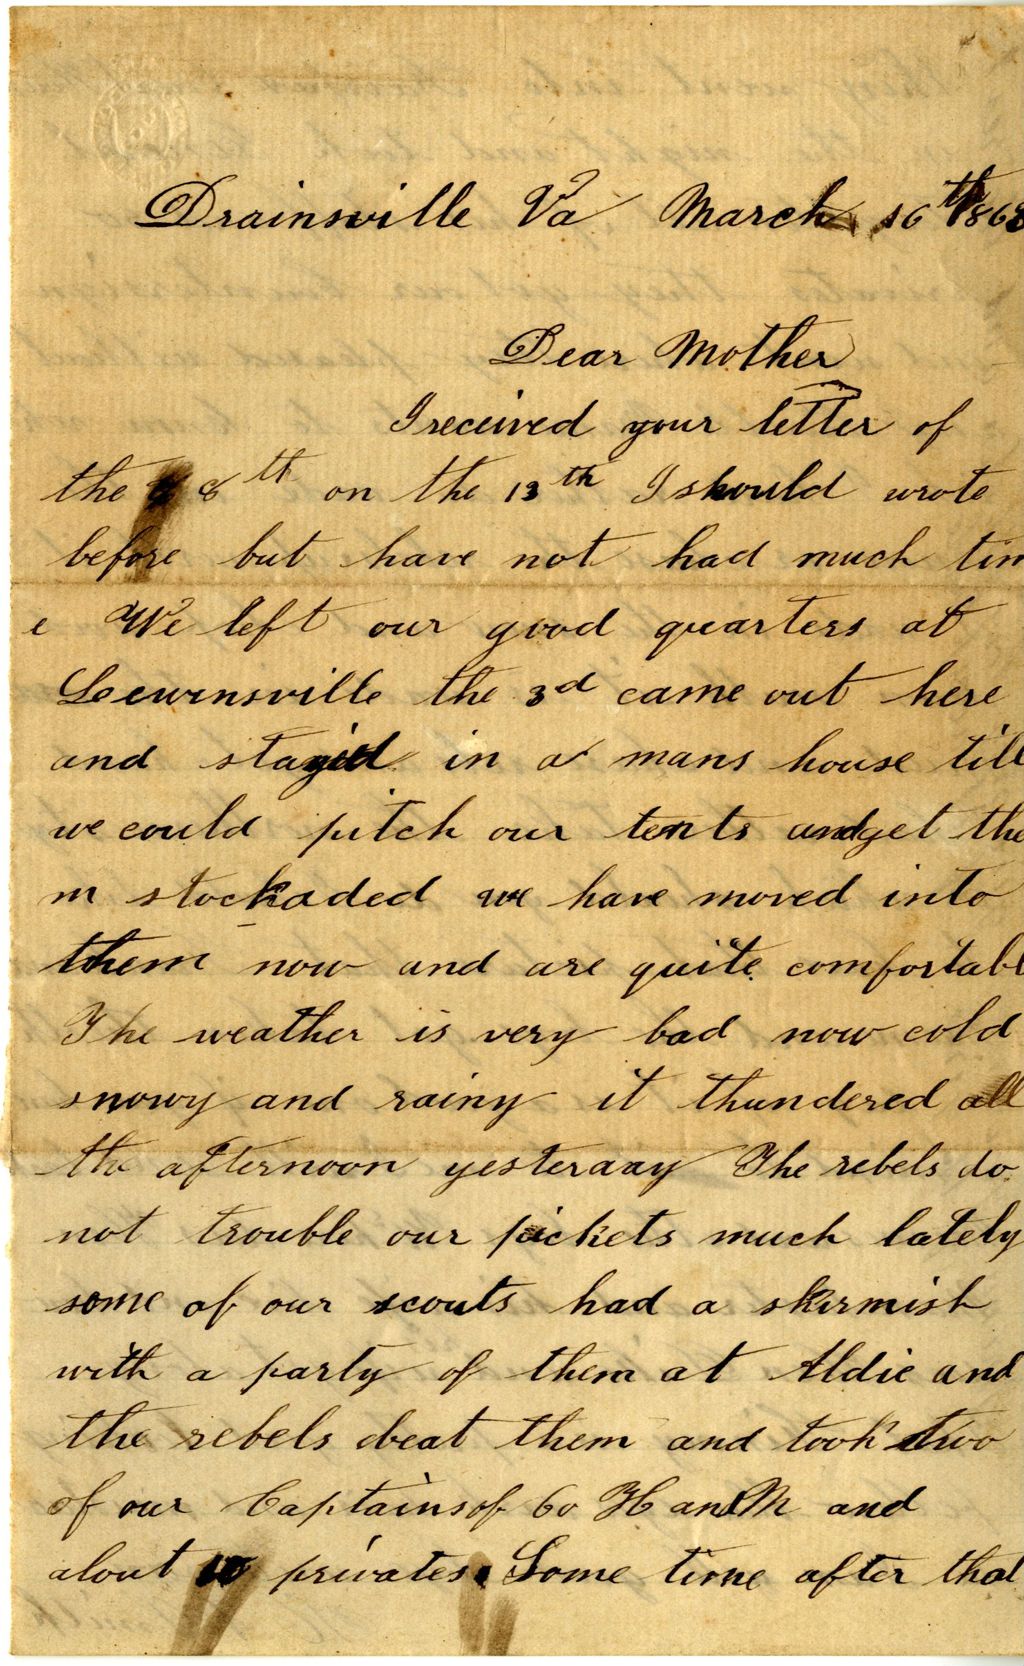 Drainsville Va March 16th 1863
Dear Mother
I received your letter of
the 8th on the 13th I should wrote
before but have not had much tim
e We left our good quarters at
Lewinsville the 3d came out here
and stayed in a mans house till
we could pitch our tents and get the
m stockaded we have moved into
them now and are quite comfortabl
The weather is very bad now cold
snowy and rainy it thundered all
the afternoon yesterday The rebels do
not trouble our pickets much lately
some of our scouts had a skirmish
with a party of them at Aldie and
the rebels beat them and took two
of our Captains of Co H and M and
about 10 privates. Some time after that